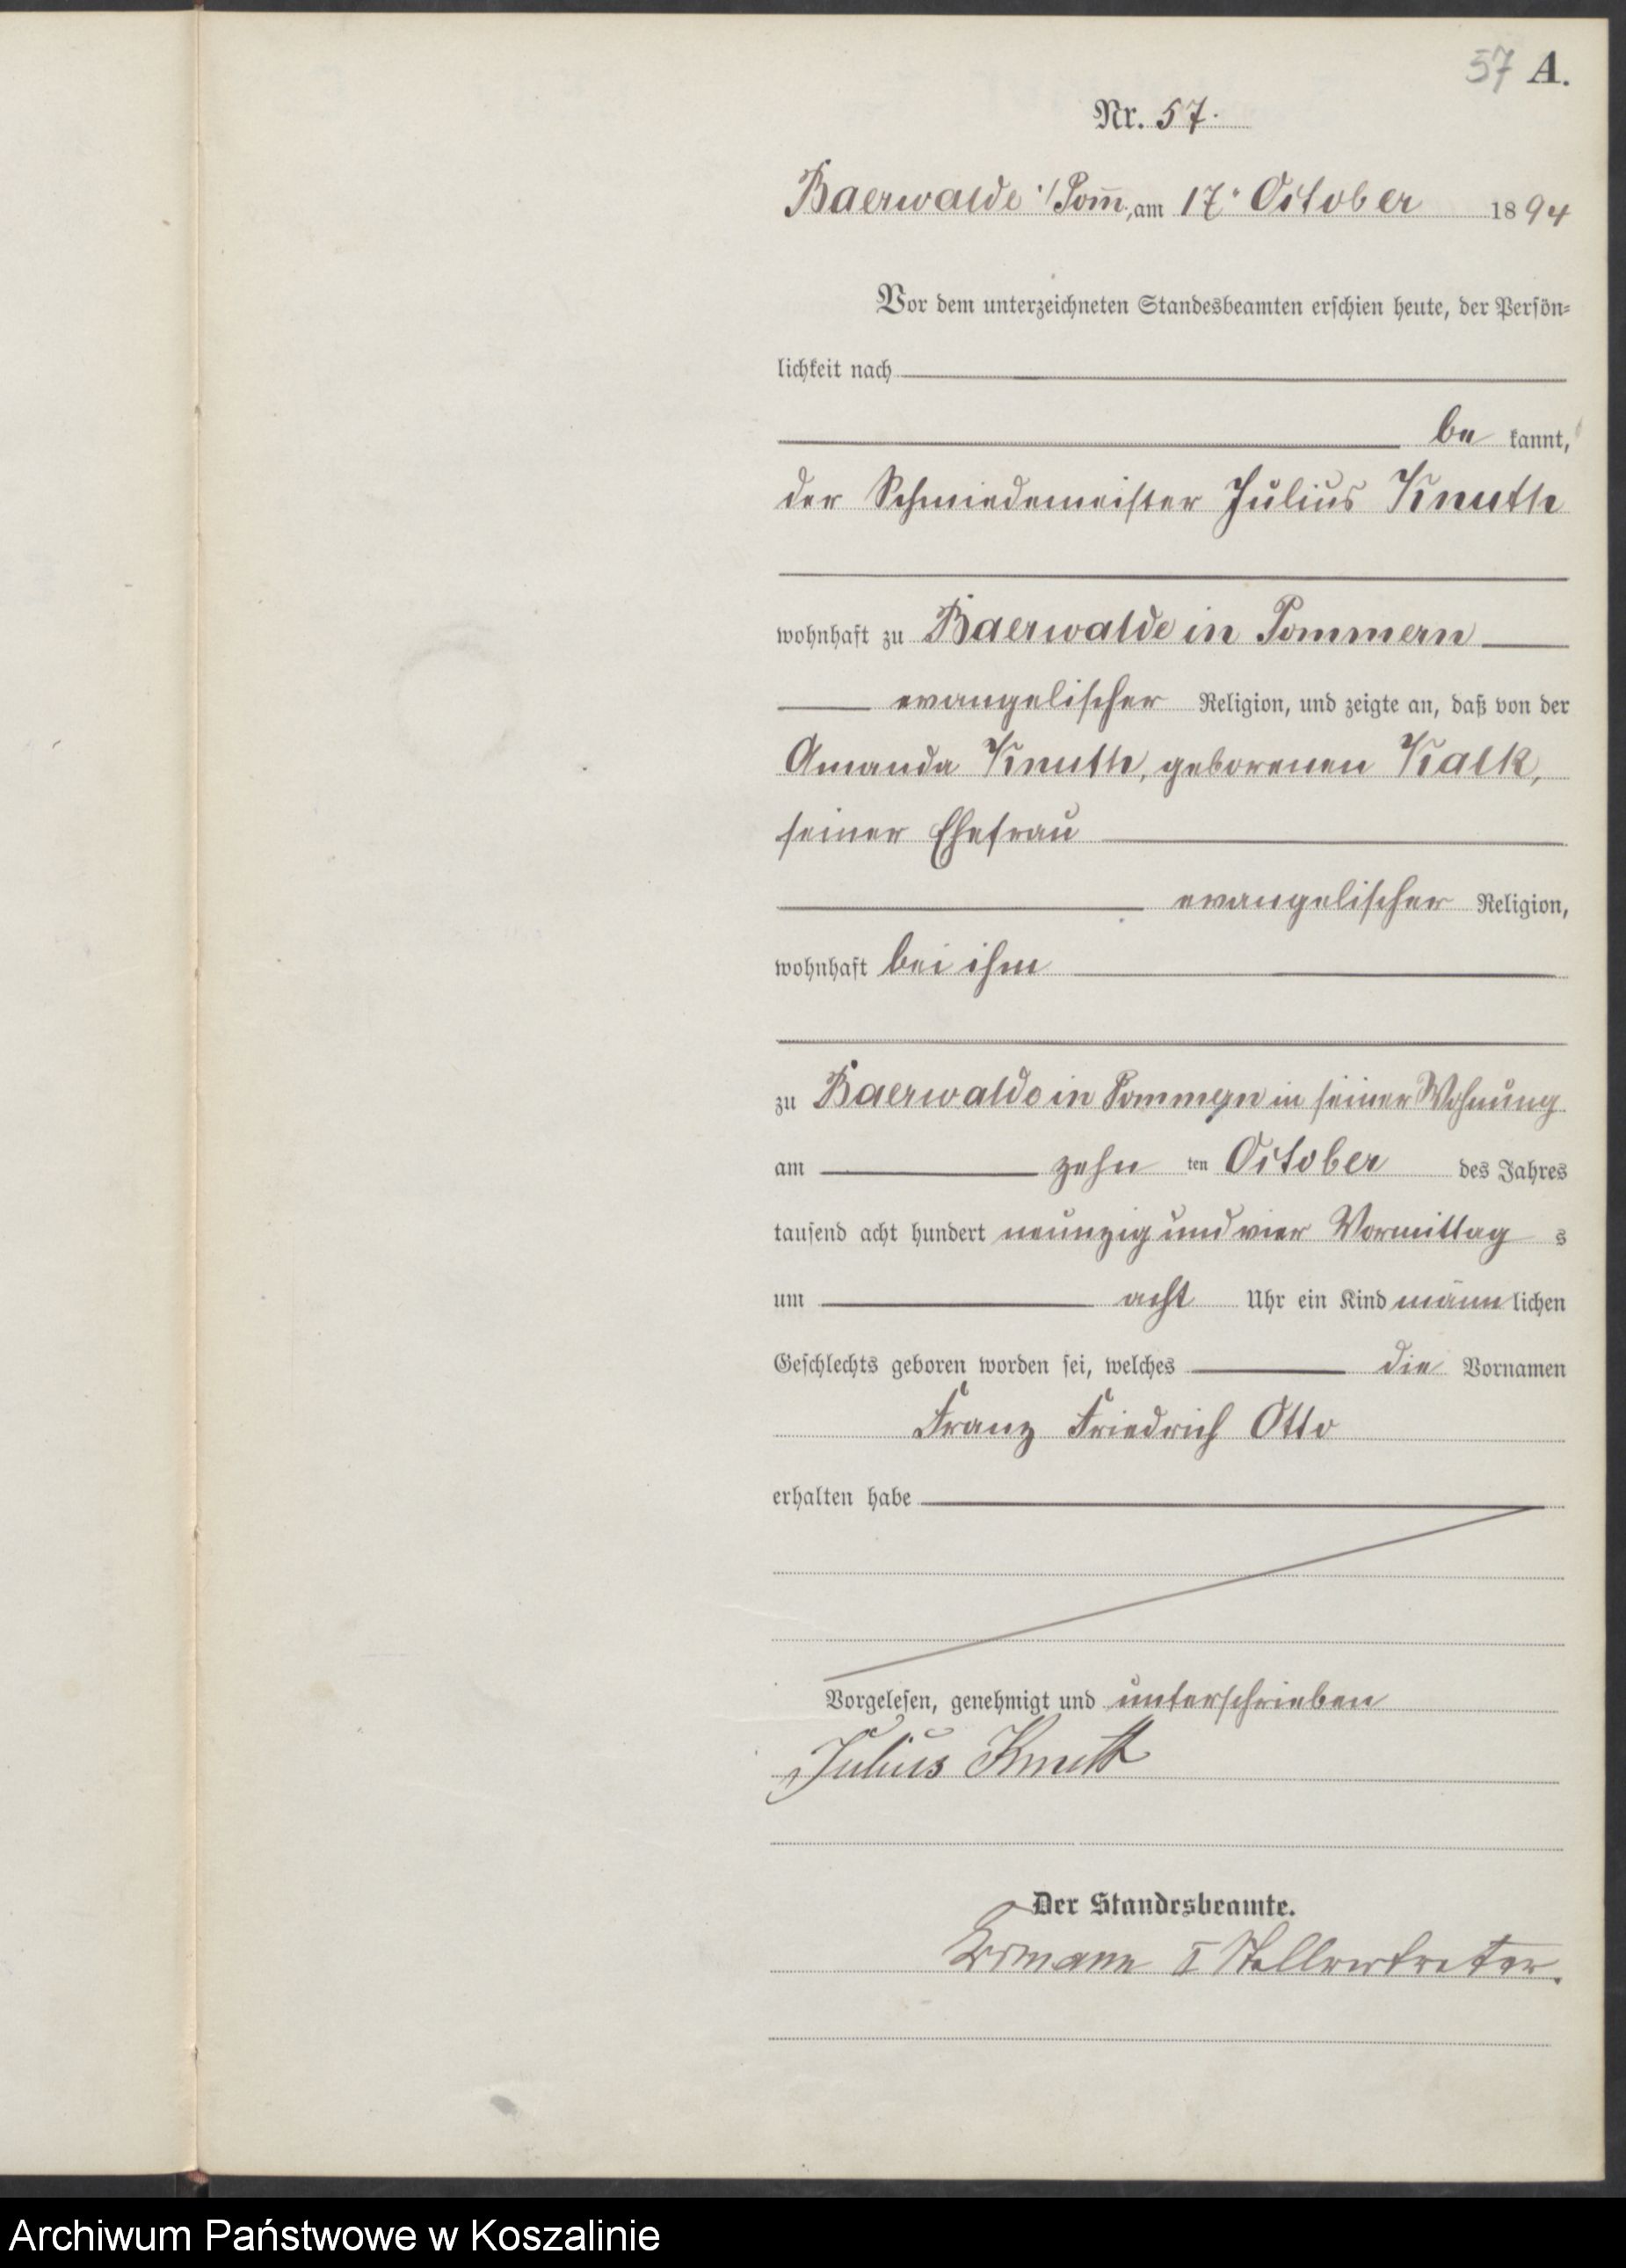 57 A.
Nr. 57.
Baerwalde i/Pom̅, am 17. October 1894
Vor dem unterzeichneten Standesbeamten erschien heute, der Persön-
lichkeit nach
be kannt,
der Schmiedemeister Julius Knuth
wohnhaft zu Baerwalde in Pommern
evangelischer Religion, und zeigte an, daß von der
Amanda Knuth, geborenen Kalk,
seiner Ehefrau
evangelischer Religion,
wohnhaft bei ihm
zu Baerwalde in Pommern in seiner Wohnung
am zehn ten October des Jahres
tausend acht hundert neunzig und vier Vormittag s
um acht Uhr ein Kind männlichen
Geschlechts geboren worden sei, welches die Vornamen
Franz Friedrich Otto
erhalten habe
Vorgelesen, genehmigt und unterschrieben
Julius Knuth
Der Standesbeamte.
II Stellvertreter.
Archiwum Państwowe w Koszalinie